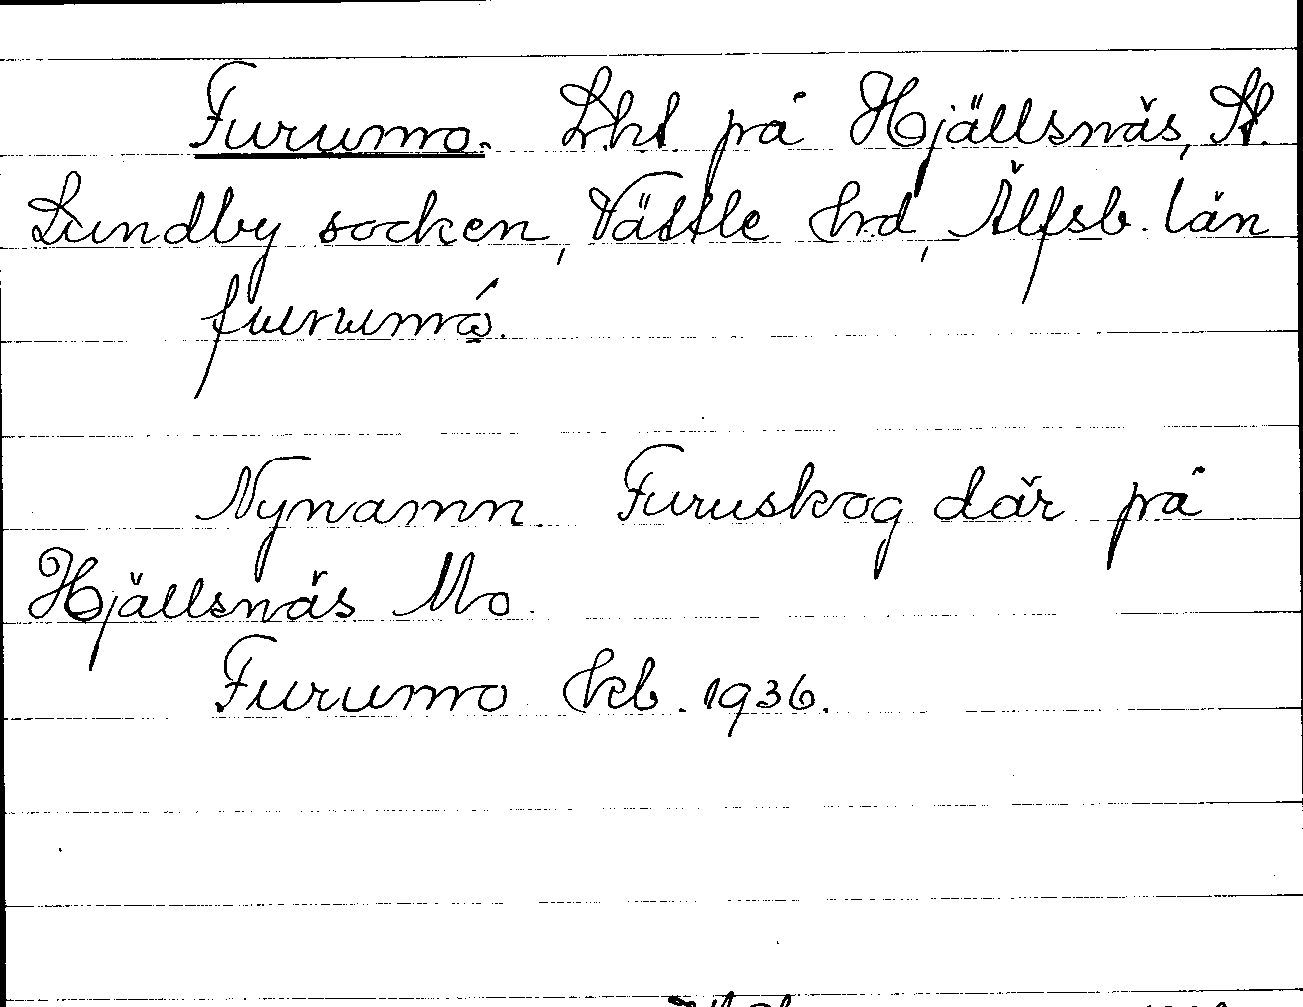 Furumo. Lht. på Hjällsnäs, St.
Lundby socken, Vättle hd, Älfsb. län
furumó.
Nynamn. Furuskog där på
Hjällsnäs Mo.
Furumo kb. 1936.